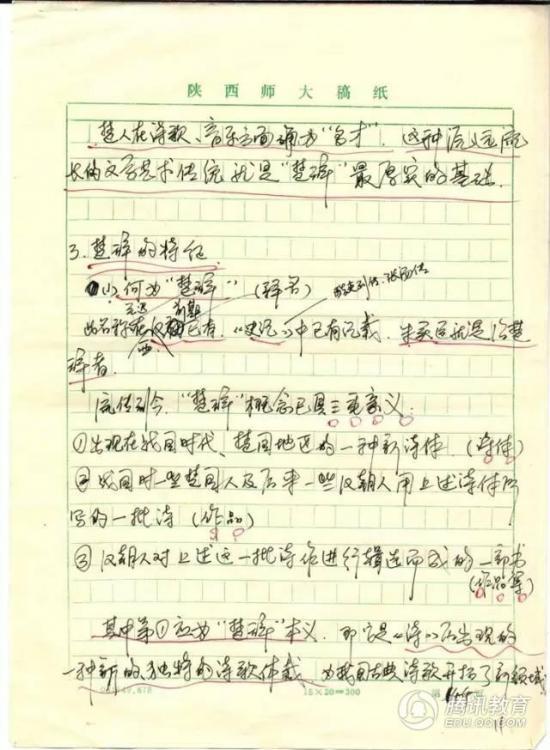 陕西师大稿纸
楚人在诗歌、音乐方面确为“多才”。这种源远流
长的文学艺术传统就是“楚辞”最厚实的基础.
3.楚辞的特征
(1)何为“楚辞”(释名)
此名称在西汉前期已有.《史记》中已有记载.朱买臣就是治楚
辞者.
流传到今,“楚辞”概念已具三重意义:
①出现在战国时代、楚国地区的一种新诗体.(诗体)
②战国时一些楚国人及后来一些汉朝人用上述诗体所
写的一批诗(作品)
③汉朝人对上述这一批诗作进行辑选而成的一部书
(作品集)
其中第①应为“楚辞”本义.即它是《诗》后出现的
一种新的独特的诗歌体裁 为我国古典诗歌开拓了新领域
15×20=300
第 页
腾讯教育
EDU.QQ.COM